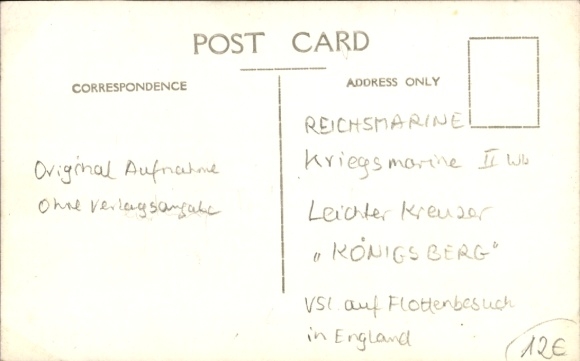 POST CARD
CORRESPONDENCE
ADDRESS ONLY
Original Aufnahme
Ohne Verlagsangabe
REICHSMARINE
Kriegsmarine II Wk
Leichter Kreuzer
"KÖNIGSBERG"
VSL. auf Flottenbesuch
in England
12€